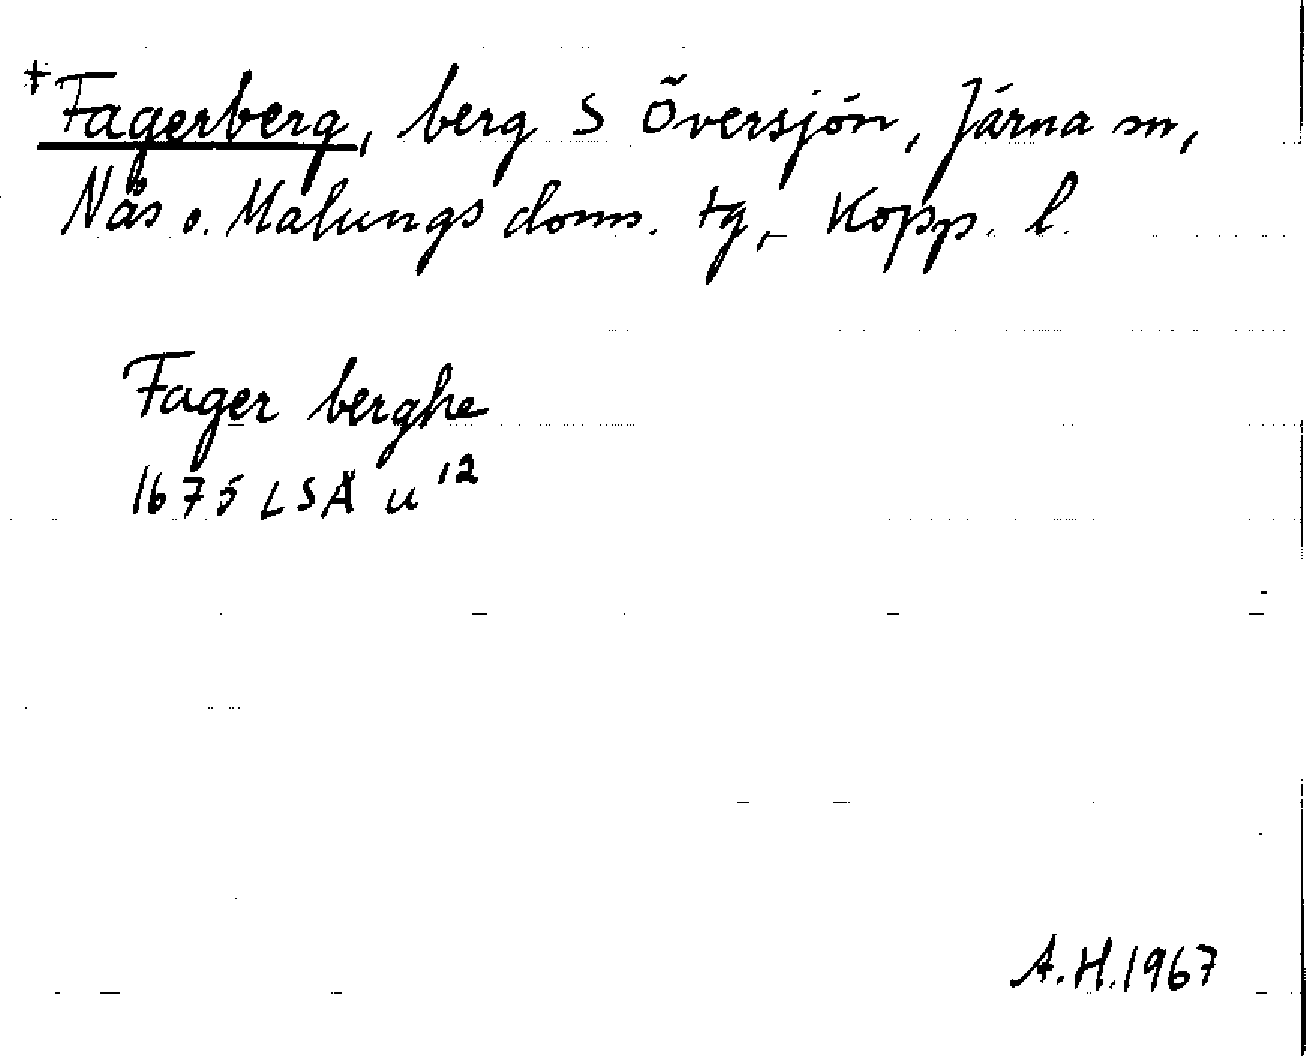 +Fagerberg, berg S Översjön, Järna sn,
Nås o. Malungs doms. tg, Kopp. l.
Fager berghe
1675 LSÄ u 12
A.H.1967